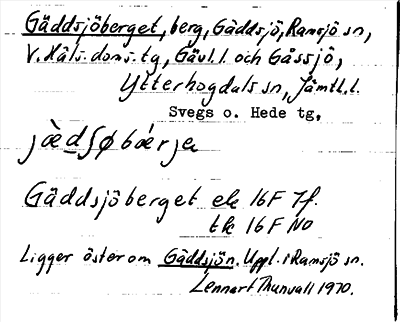 Gäddsjöberget, berg, Gäddsjö, Ramsjö sn,
V. Häls. doms. tg, Gävl. l. och Gåssjö,
Ytterhogdals sn, Jämtl. l.
Svegs o. Hede tg,
Gäddsjöberget ek 16F 7f.
tk 16F NO
Ligger öster om Gäddsjön. Uppl. i Ramsjö sn.
Lennart Thunvall 1970.